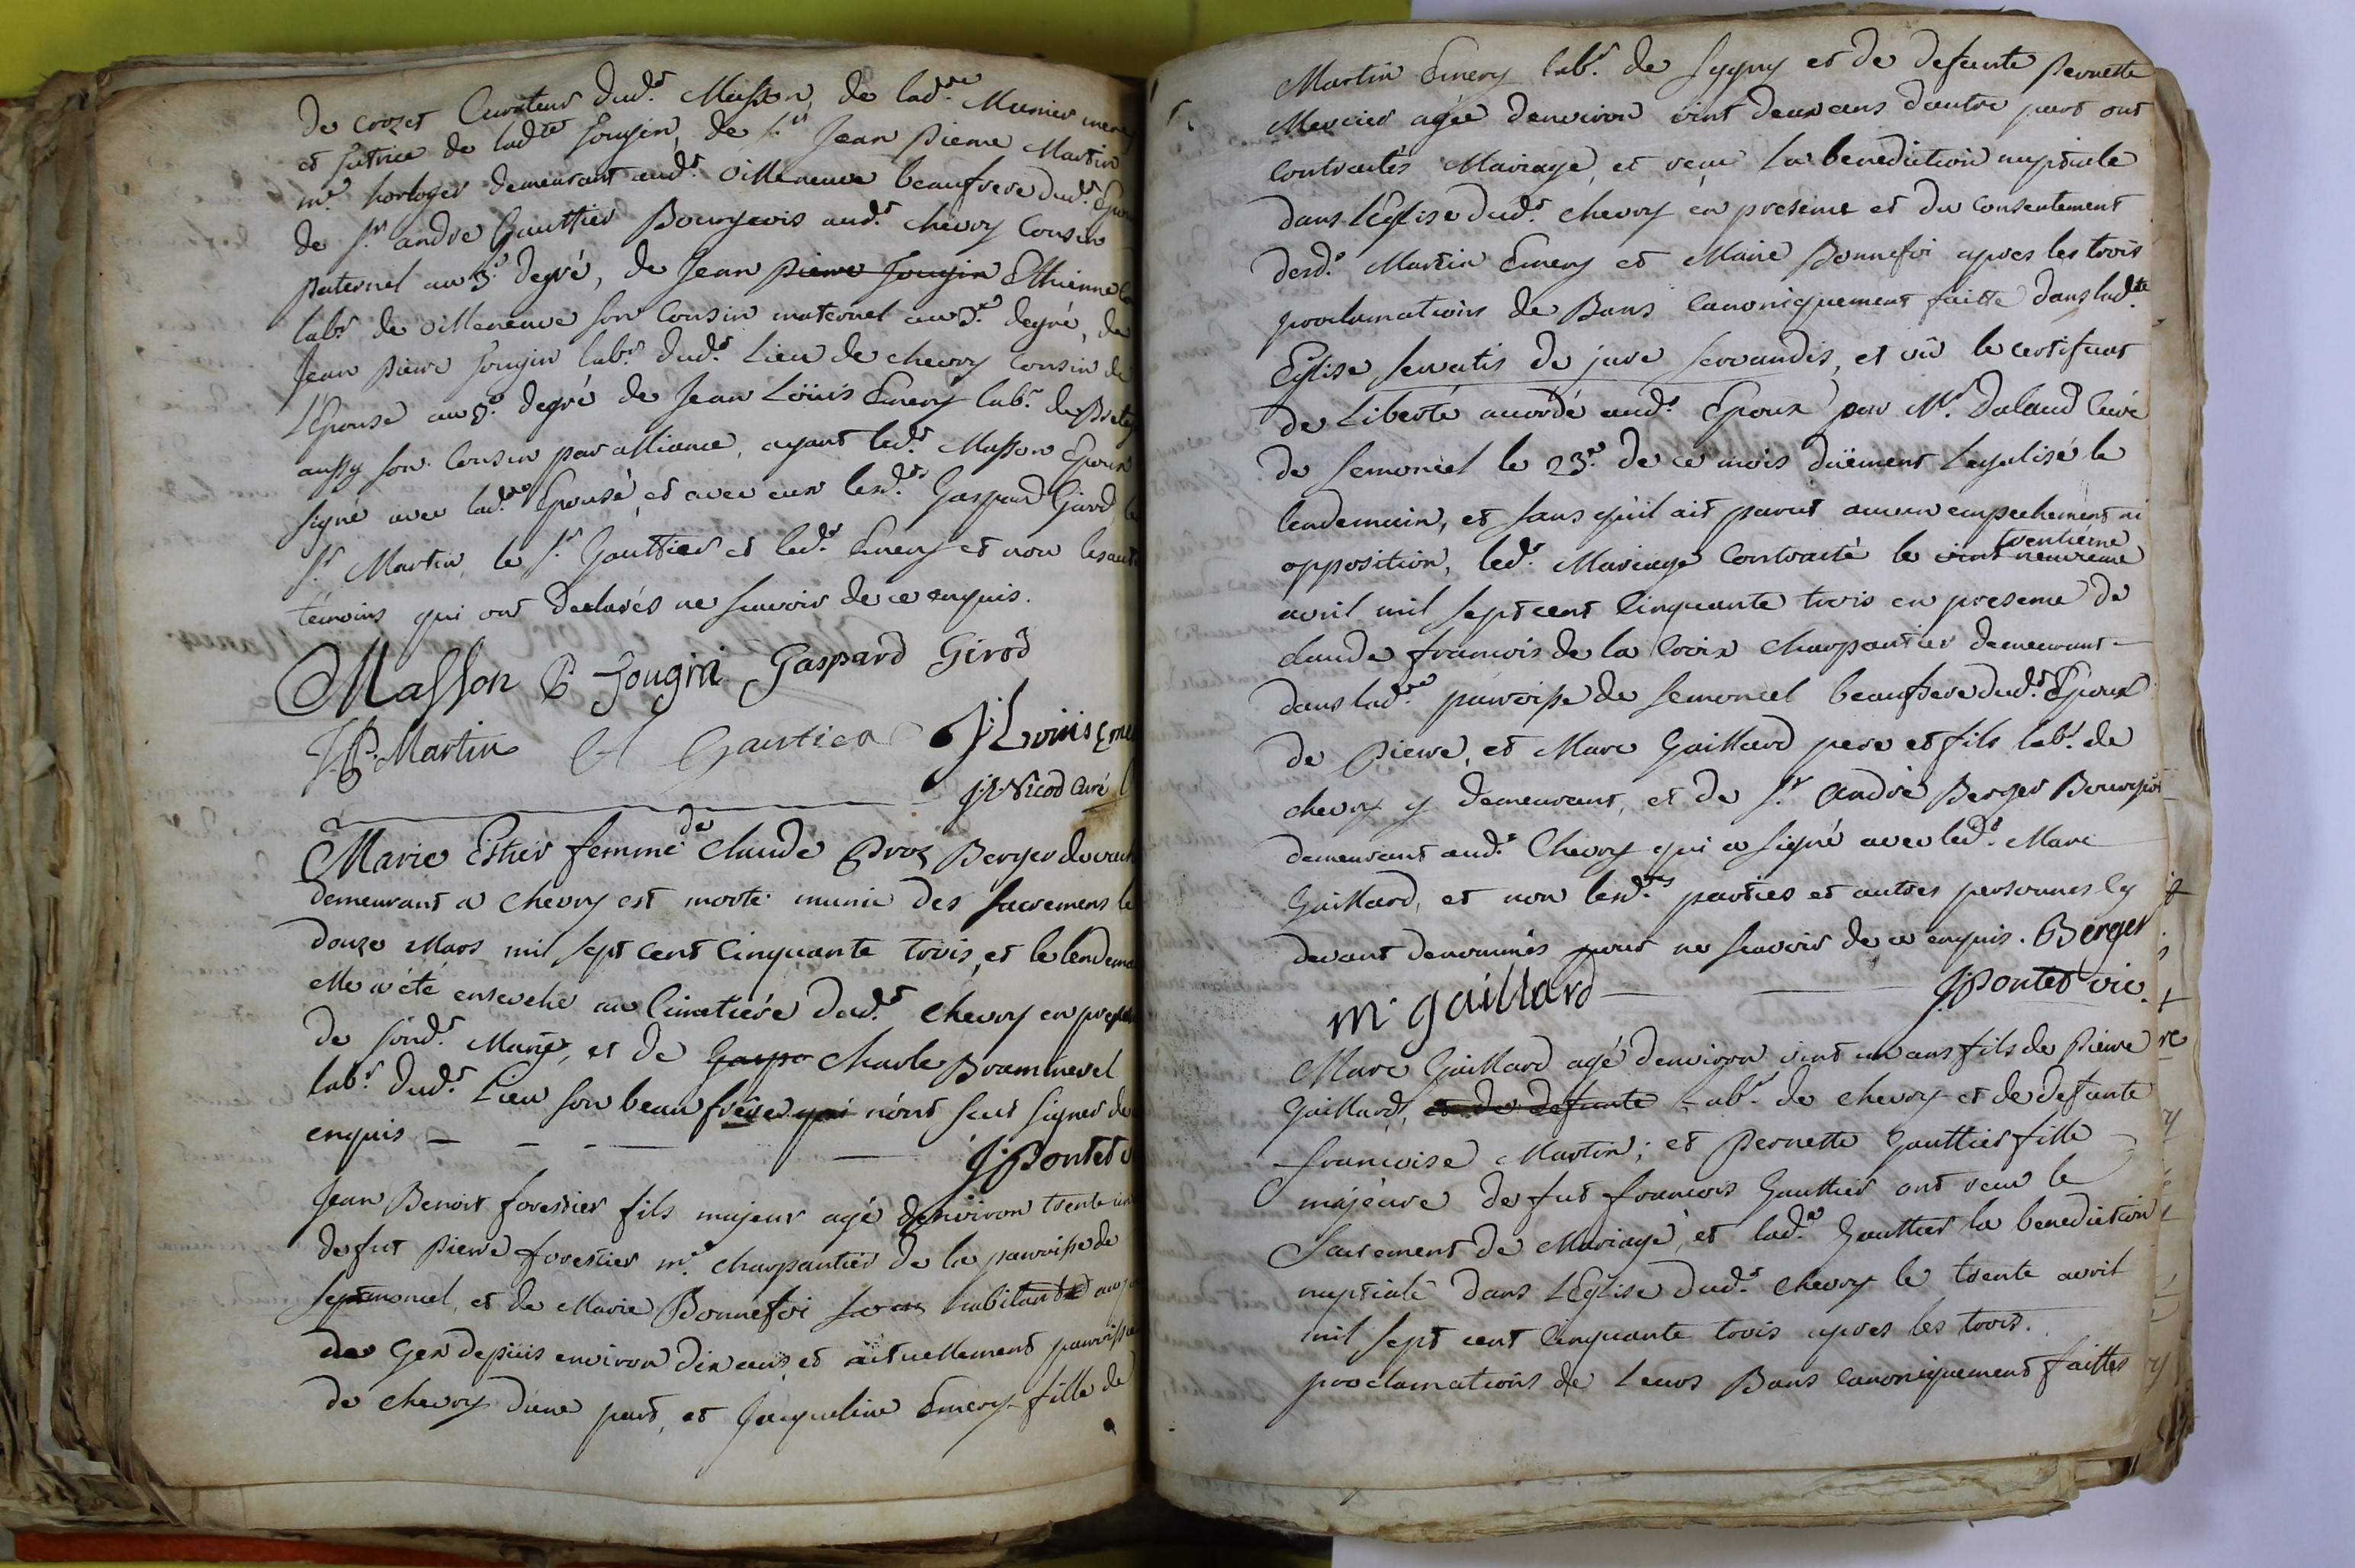 De Crozet Curateur dud.t Masson, de lad.te Munier mere
et tutrice de ladte Fougin, de S.r Jean Pierre Martin
m.e horloger demeurant aud.t Villeneuve beaufrere dud.t Epoux
de S.r andre Gauttier Bourgeois aud.t chevry Cousin
paternel au 3.e degré, de Jean Pierre Fougin Ethienne
labr de villeneuve son Cousin maternel au 3.e degré, de
Jean Pierre Fougin lab.r dud.t Lieu de chevry Cousin de
L'Epouse au 3.e degré de Jean Loüis Emery lab.r de
aussy son Cousin par alliance, ayant led.t Masson Epoux
signé avec lad.te Epouse, et avec eux lesd.ts Gaspard Girod, le
S.r Martin, le S.r Gauttier et led.t Emery et non les autres
témoins qui ont declarés ne scavoir de ce enquis.
Masson P Fougin Gaspard Girod
J.P. Martin A Gautier J: Louis Emery
J.L. Nicod Curé
Marie Esther femme de Claude Proz Berger
demeurant a chevry est morte munie des sacremens le
douze Mars mil sept cent Cinquante trois, et le lendemain
elle a été ensevelie au Cimetiére dud.t Chevry en presence
de et de Gaspa Charle Braminerel
lab.r dud.t Lieu son beaufrére qui n'ont sceu signer de
enquis J: Pontet
Jean Benoit forestier fils majeur agé d'environ trente
defut Pierre forestier m.e charpantier de la parroisse de
Septmoncel, et de Marie Bonnefoi habitant au
de Gex depuis environ dix ans, et actuellement parroissien
de chevry d'une part, et Jacqueline Emery fille de
Martin Emery lab.r de Sygny et de defunte Pernette
Mercier agée d'environ vint deux ans d'autre part ont
contractés Mariage, et reçu La benediction nuptiale
dans l'Eglise dud.t chevry en presence et du consentement
desd.s Martin Emery et Marie Bonnefoi apres les trois
proclamations de Bans canoniquement faitte dans lad.te
Eglise servatis de jure servandis, et vû le certificat
de Liberté accordé aud.t Epoux par M.r Daland Curé
de Semoncel le 23.e de ce mois düement Legalisé le
lendemain, et sans qu'il ait parut aucun empechement ni
opposition, led.t Mariage Contracté le vint neuvieme trentiéme
avril mil sept cent Cinquante trois en presence de
claude francois de la Croix charpantier demeurant
dans lad.te parroisse de Semoncel beaufrere dud.t Epoux
de Pierre, et Marc Gaillard pere et fils lab.r de
chevry y demeurant, et de S.r andré Berger Bourgeois
demeurant aud.t Chevry qui a signé avec led.t Marc
Gaillard, et non lesd.tes parties et autres personnes Cy
devant denommés pour ne scavoir de ce enquis. Berger
m gaillard J: Pontet vic.
Marc Gaillard agé d'environ vint un ans fils de Pierre
Gaillard, et de defunte Lab.r de chevry et de defunte
francoise Martin; et Pernette Gauttier fille
majeure defut francois Gauttier ont reçu le
Sacrement de Mariage, et lad.te Gauttier la benediction
nuptiale dans L'Eglise dud.t chevry le trente avril
mil sept cent Cinquante trois apres les trois
proclamations de Leurs Bans canoniquement faittes